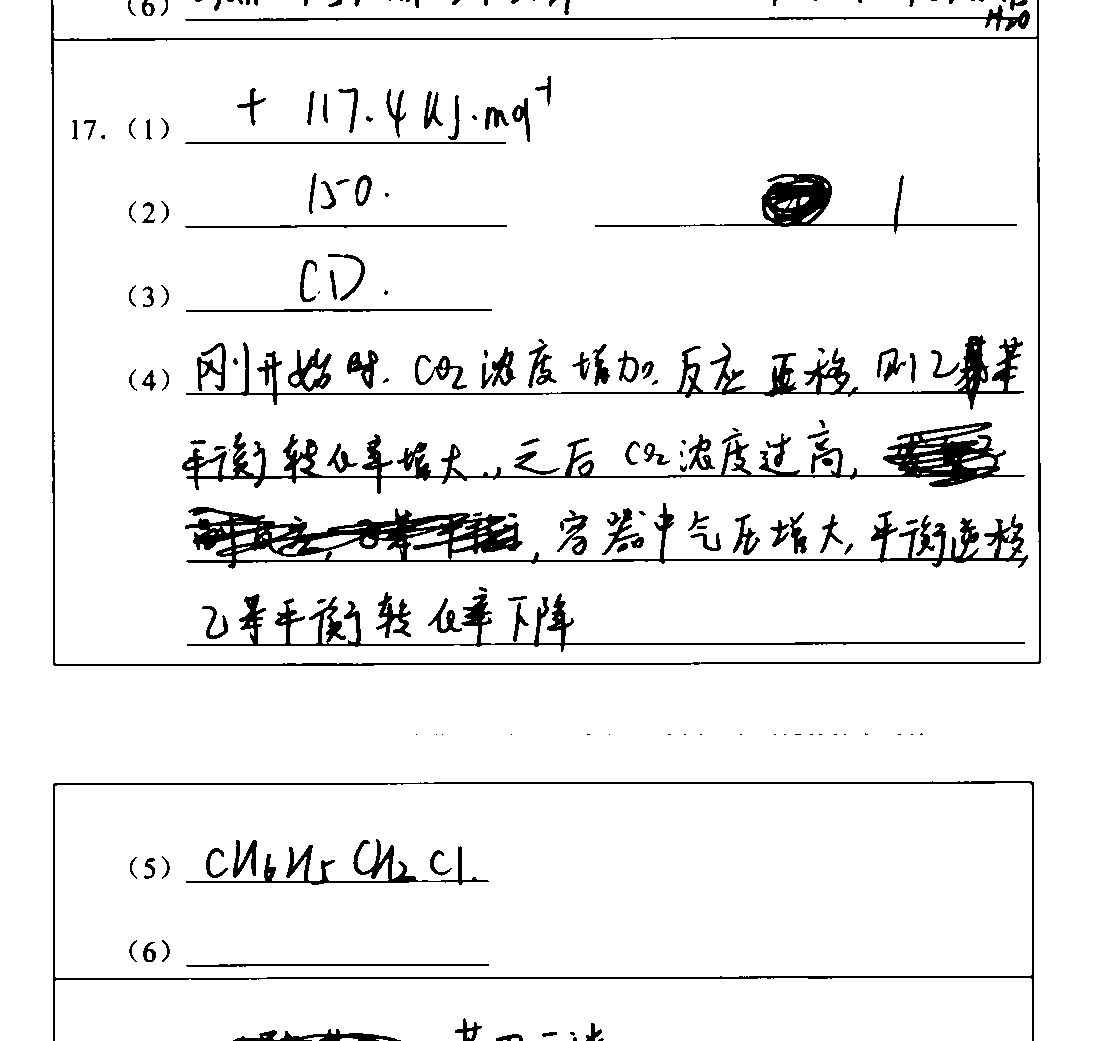 (6)
H2O
17. (1) + 117.4 kJ·mol⁻¹
(2) 150. 1
(3) CD.
(4) 刚开始时. CO2浓度增加. 反应正移, 则乙苯
平衡转化率增大., 之后CO2浓度过高,
, 容器中气压增大, 平衡逆移,
乙苯平衡转化率下降
(5) CH6H5CH2Cl.
(6)